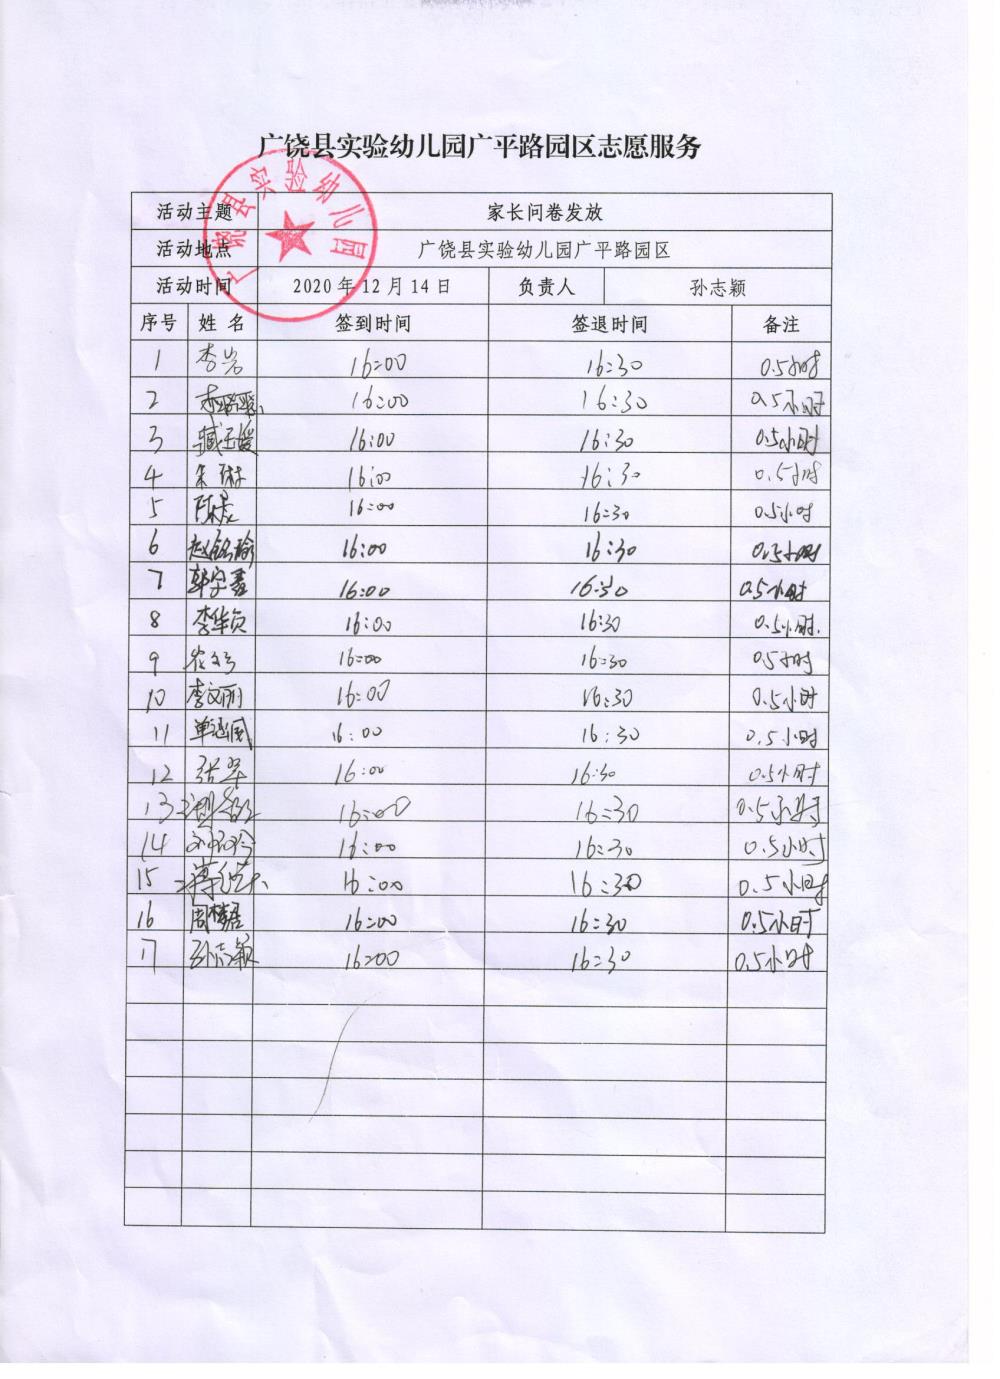 广饶县实验幼儿园广平路园区志愿服务
广饶县实验幼儿园
活动主题 家长问卷发放
活动地点 广饶县实验幼儿园广平路园区
活动时间 2020 年 12 月 14 日 负责人 孙志颖
序号 姓 名 签到时间 签退时间 备注
1 李岩 16:00 16:30 0.5小时
2 16:00 16:30 0.5小时
3 臧玉媛 16:00 16:30 0.5小时
4 朱琳 16:00 16:30 0.5小时
5 陈晨 16:00 16:30 0.5小时
6 赵铭瑜 16:00 16:30 0.5小时
7 郭宇 16:00 16:30 0.5小时
8 李华贞 16:00 16:30 0.5小时.
9 16:00 16:30 0.5小时
10 李文丽 16:00 16:30 0.5小时
11 16:00 16:30 0.5小时
12 张翠 16:00 16:30 0.5小时
13 16:00 16:30 0.5小时
14 16:00 16:30 0.5小时
15 16:00 16:30 0.5小时
16 周梦 16:00 16:30 0.5小时
17 孙志颖 16:00 16:30 0.5小时